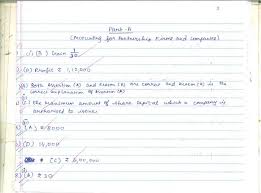 Part-A
(Accounting for Partnership Firms and Companies)
(B) Gain 1/30
(D) Profit ₹ 1,12,000
(A) Both Assertion (A) and Reason (R) are correct and Reason (R) is the
correct explanation of Assertion (A)
(C) the maximum amount of share capital which a company is
authorised to issue.
(A) ₹ 8000
(D) 14,000
(C) ₹ 6,00,000
(A) ₹ 20